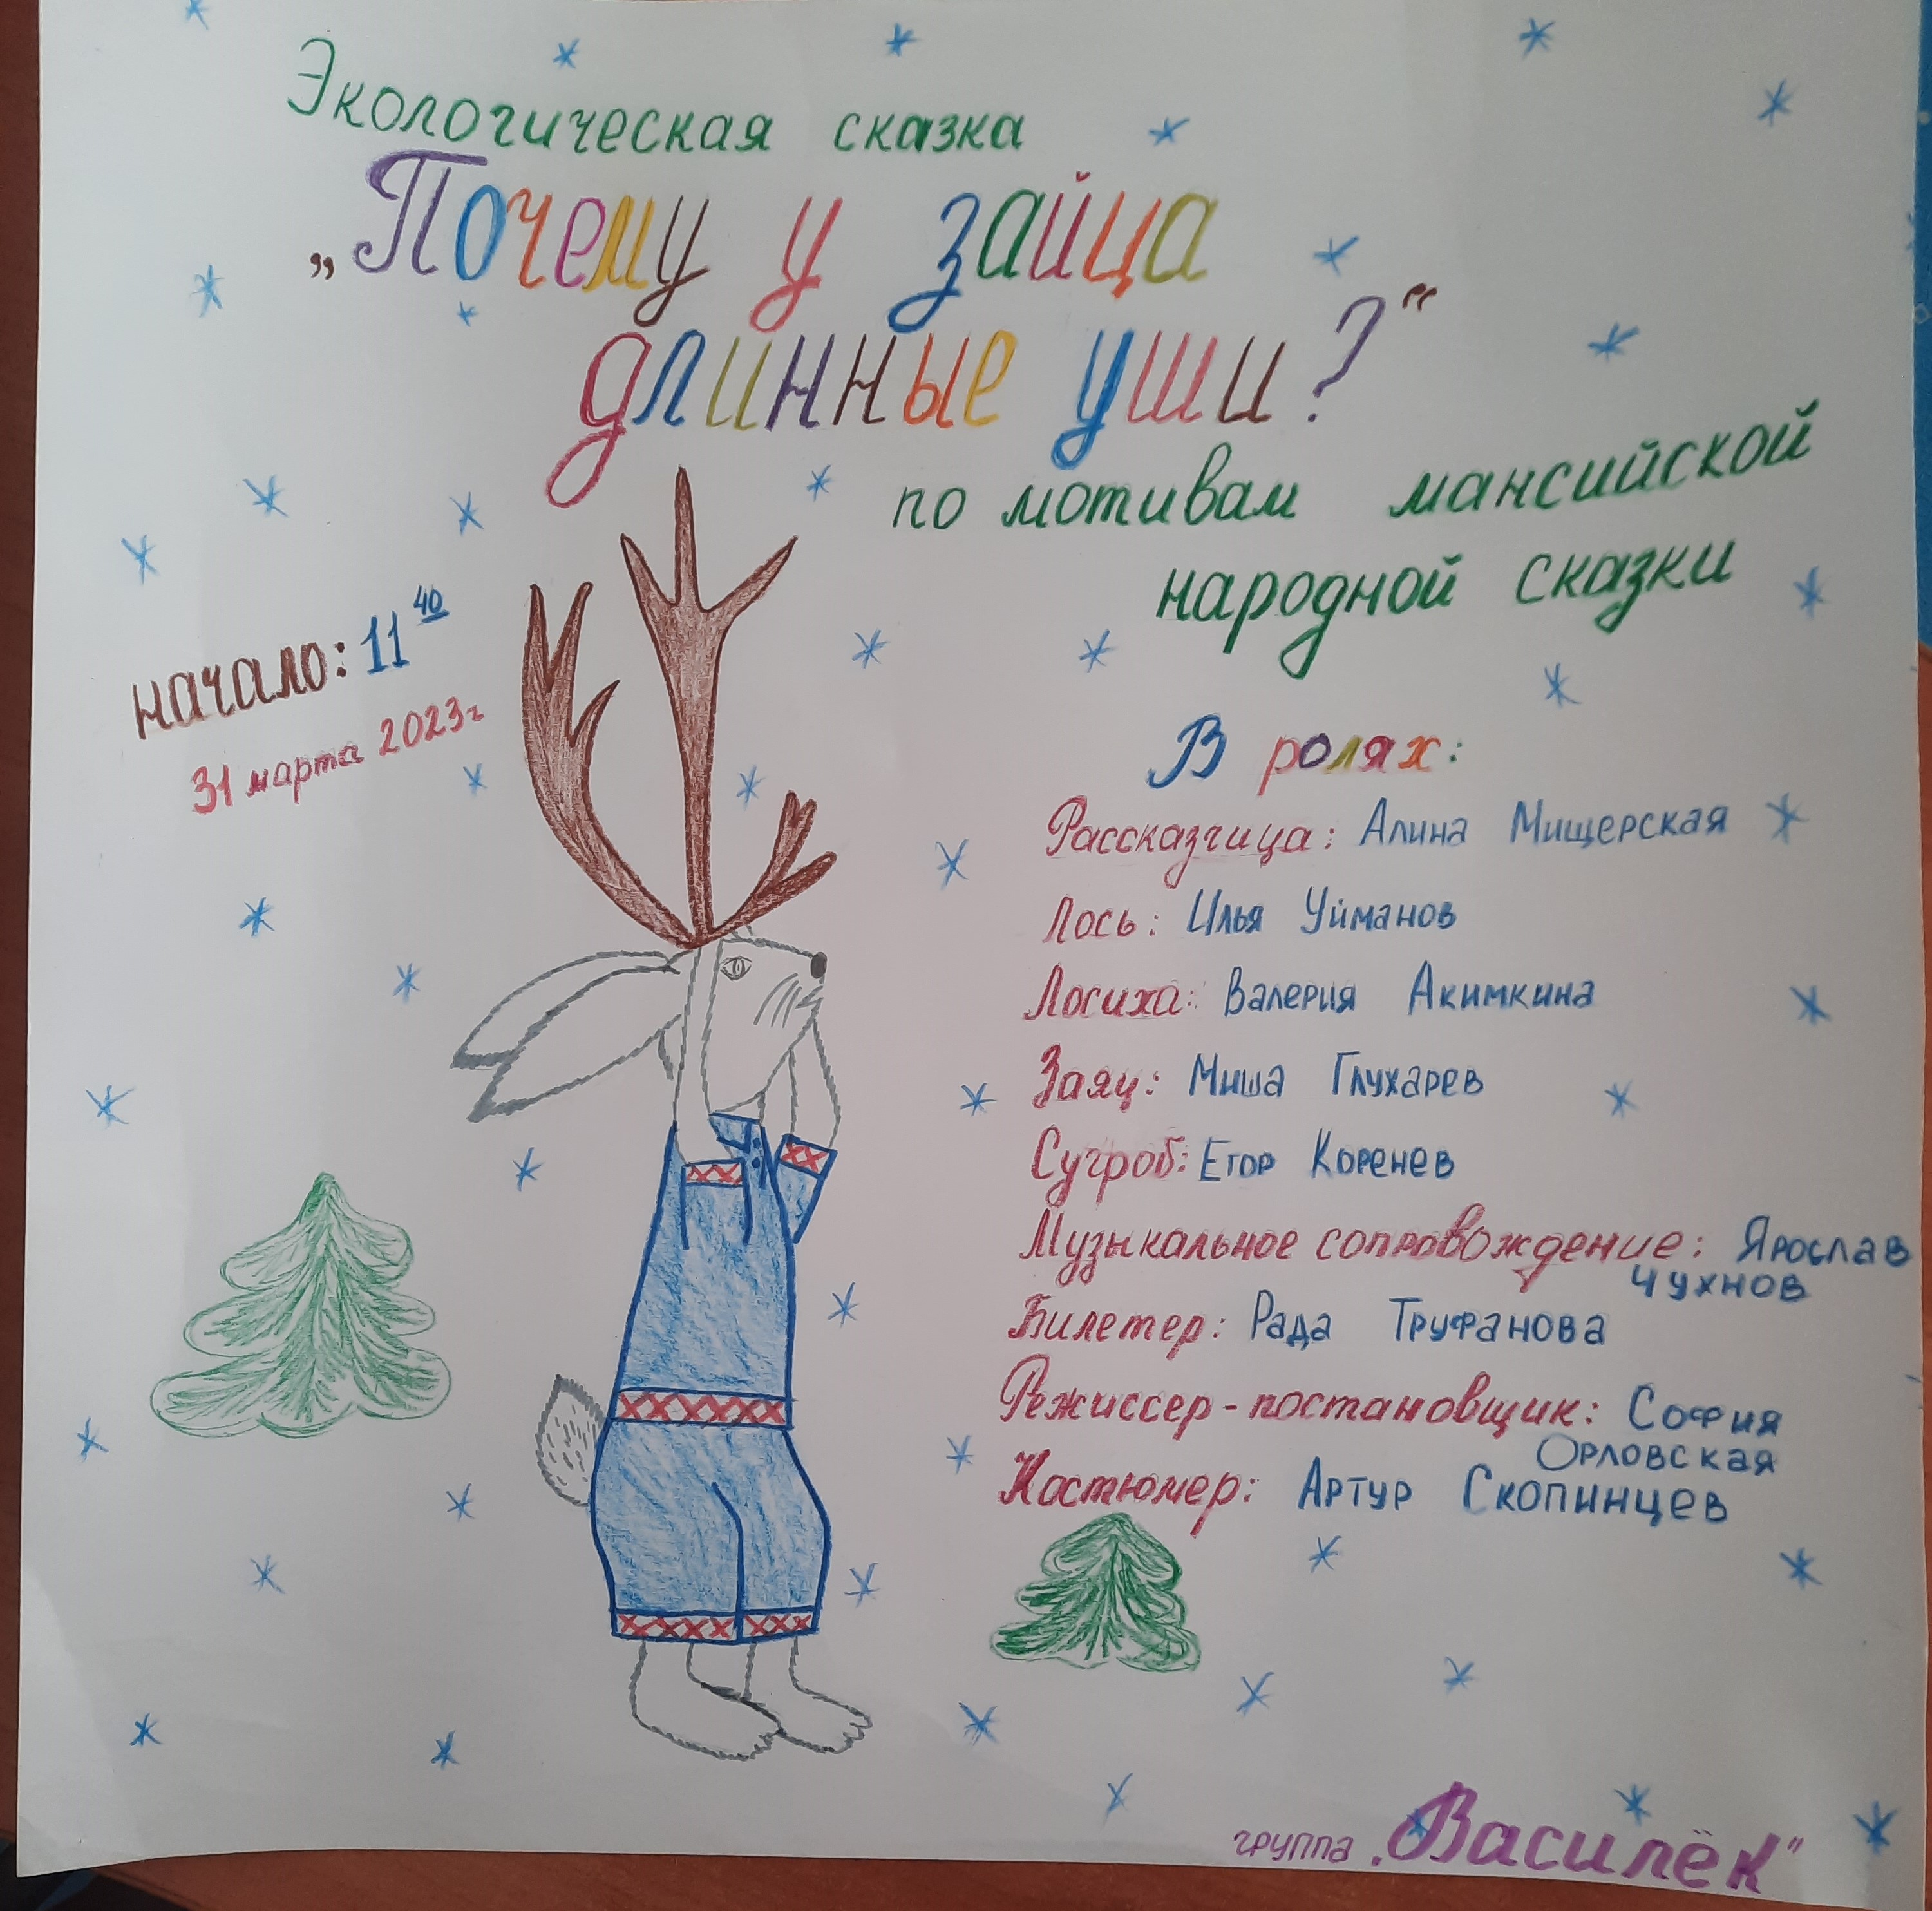 Экологическая сказка
„Почему у зайца
длинные уши?“
по мотивам мансийской
народной сказки
начало: 11 40
31 марта 2023г
В ролях:
Рассказчица: Алина Мищерская
Лось: Илья Уйманов
Лосиха: Валерия Акимкина
Заяц: Миша Глухарев
Сугроб: Егор Коренев
Музыкальное сопровождение: Ярослав
Чухнов
Билетер: Рада Труфанова
Режиссер-постановщик: София
Орловская
Костюмер: Артур Скопинцев
группа „Василёк“